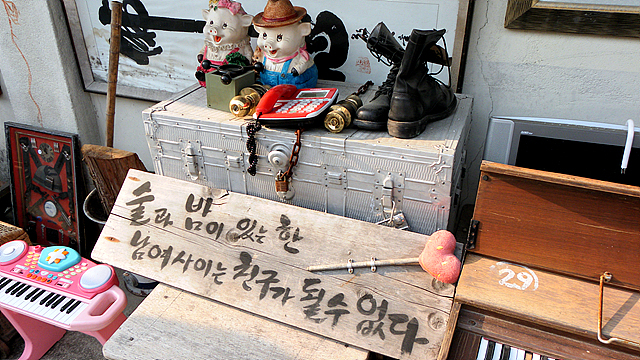 술과 밤이 있는 한
남여사이는 친구가 될수 없다
29